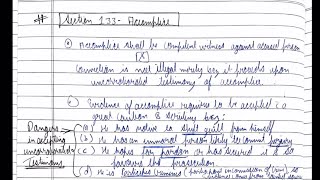 # Section 133 - Accomplice
(a) Accomplice shall be competent witness against accused person
Conviction is not illegal merely bcoz it proceeds upon
uncorroborated testimony of accomplice.
(b) Evidence of accomplice requires to be accepted in a
great caution & scrutiny bcoz:
Dangers in accepting uncorroborated Testimony
(a) He has motive to shift guilt from himself
(b) He is an immoral person likely to commit perjury
(c) He hopes for pardon or has secured it & so
favours the prosecution.
(d) He is Particeps Criminis (participant in commission of crime)